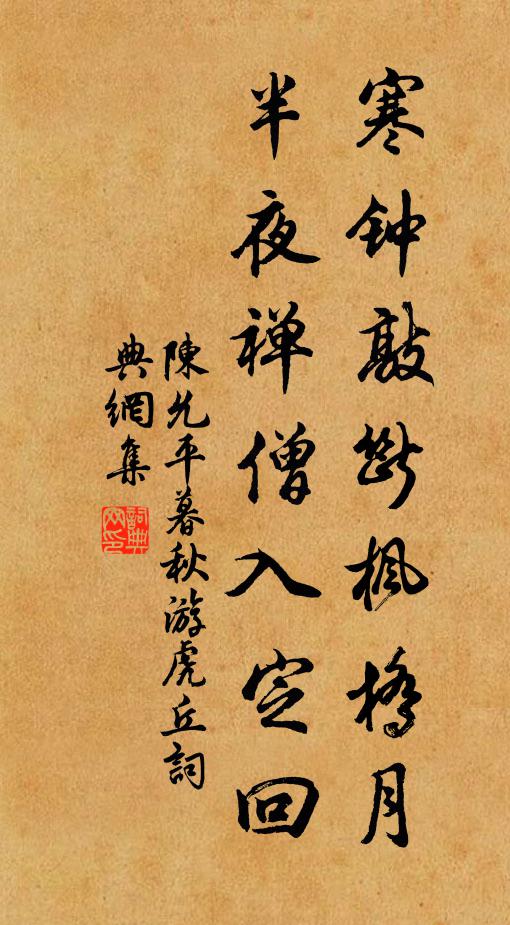 寒钟敲断枫橋月
半夜禅僧入定回
陳允平暮秋游虎丘詞
典網集
詞典网印